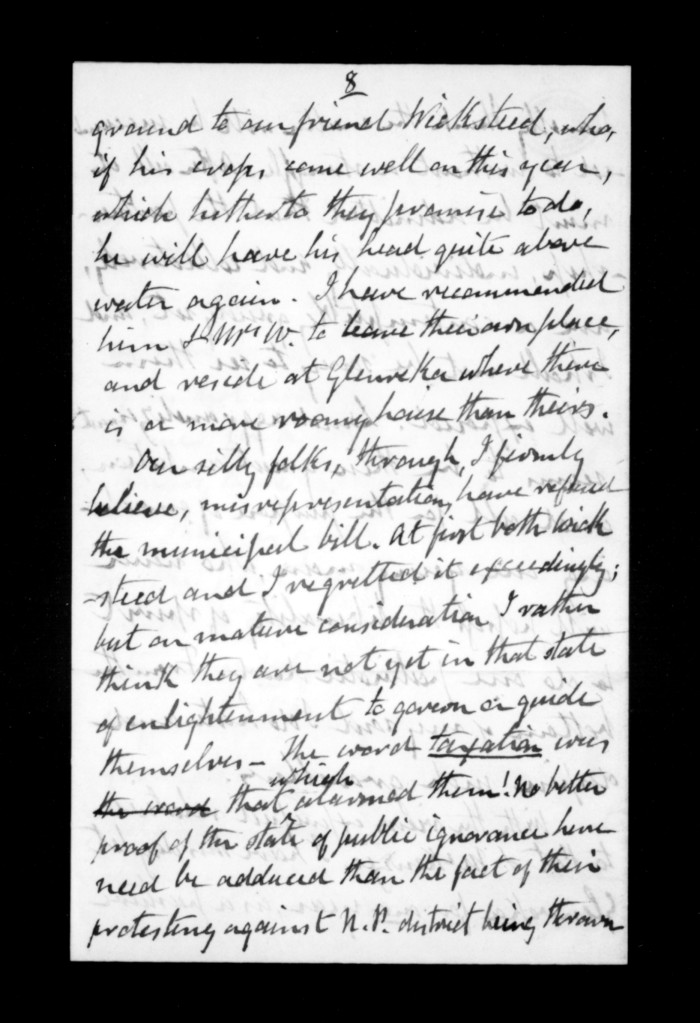 8
ground to our friend Wicksteed, who,
if his crops, come well on this year,
which hitherto they promise to do,
he will have his head quite above
water again. I have recommended
him & Mrs W. to leave their own place,
and reside at Glenveka where there
is a more roomy house than theirs.
Our silly folks, through, I firmly
believe, misrepresentation, have refused
the municipal bill. At first both Wick
-steed and I regretted it exceedingly;
but on mature consideration I rather
think they are not yet in that state
of enlightenment to govern or guide
themselves — The word taxation was
which
the word that alarmed them! No better
proof of the state of public ignorance here
need be adduced than the fact of their
protesting against N.P. district being thrown